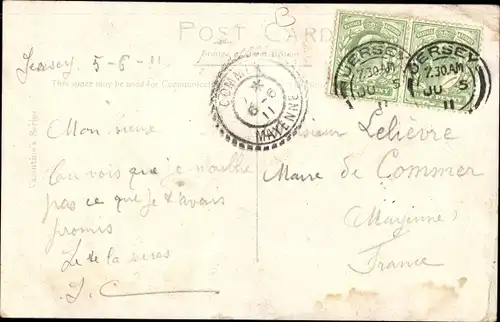 POST CARD
Jersey 5-6-11
This space may be used for Communication
Valentine's Series
COMMER
*
6-6
11
MAYENNE
JERSEY
7.30 AM
JU 5
11
JERSEY
7.30 AM
JU 5
11
Mon vieux
Tu vois que je n'oublie
pas ce que je t'avais
promis
J. C
Monsieur Lelièvre
Maire de Commer
Mayenne
France